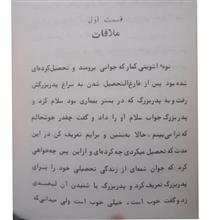 قسمت اول
ملاقات
نوبه اشوینی کمار که جوانی برومند و تحصیل کرده‌ای
شده بود پس از فارغ‌التحصیل شدن به سراغ پدربزرگش
رفت و به پدربزرگ که در بستر بیماری بود سلام کرد و
پدربزرگ جواب سلام او را داد و گفت چقدر خوشحالم
که ترا می‌بینم، حالا بنشین و برایم تعریف کن در این
مدت که تحصیل میکردی چه کرده‌ای و از این پس چه خواهی
کرد که جوان شمه‌ای از زندگی تحصیلی خود را برای
پدربزرگ تعریف کرد و پدربزرگ با شنیدن آن لبخندی
زد و گفت خوب است، خیلی خوب است ولی میدانی که